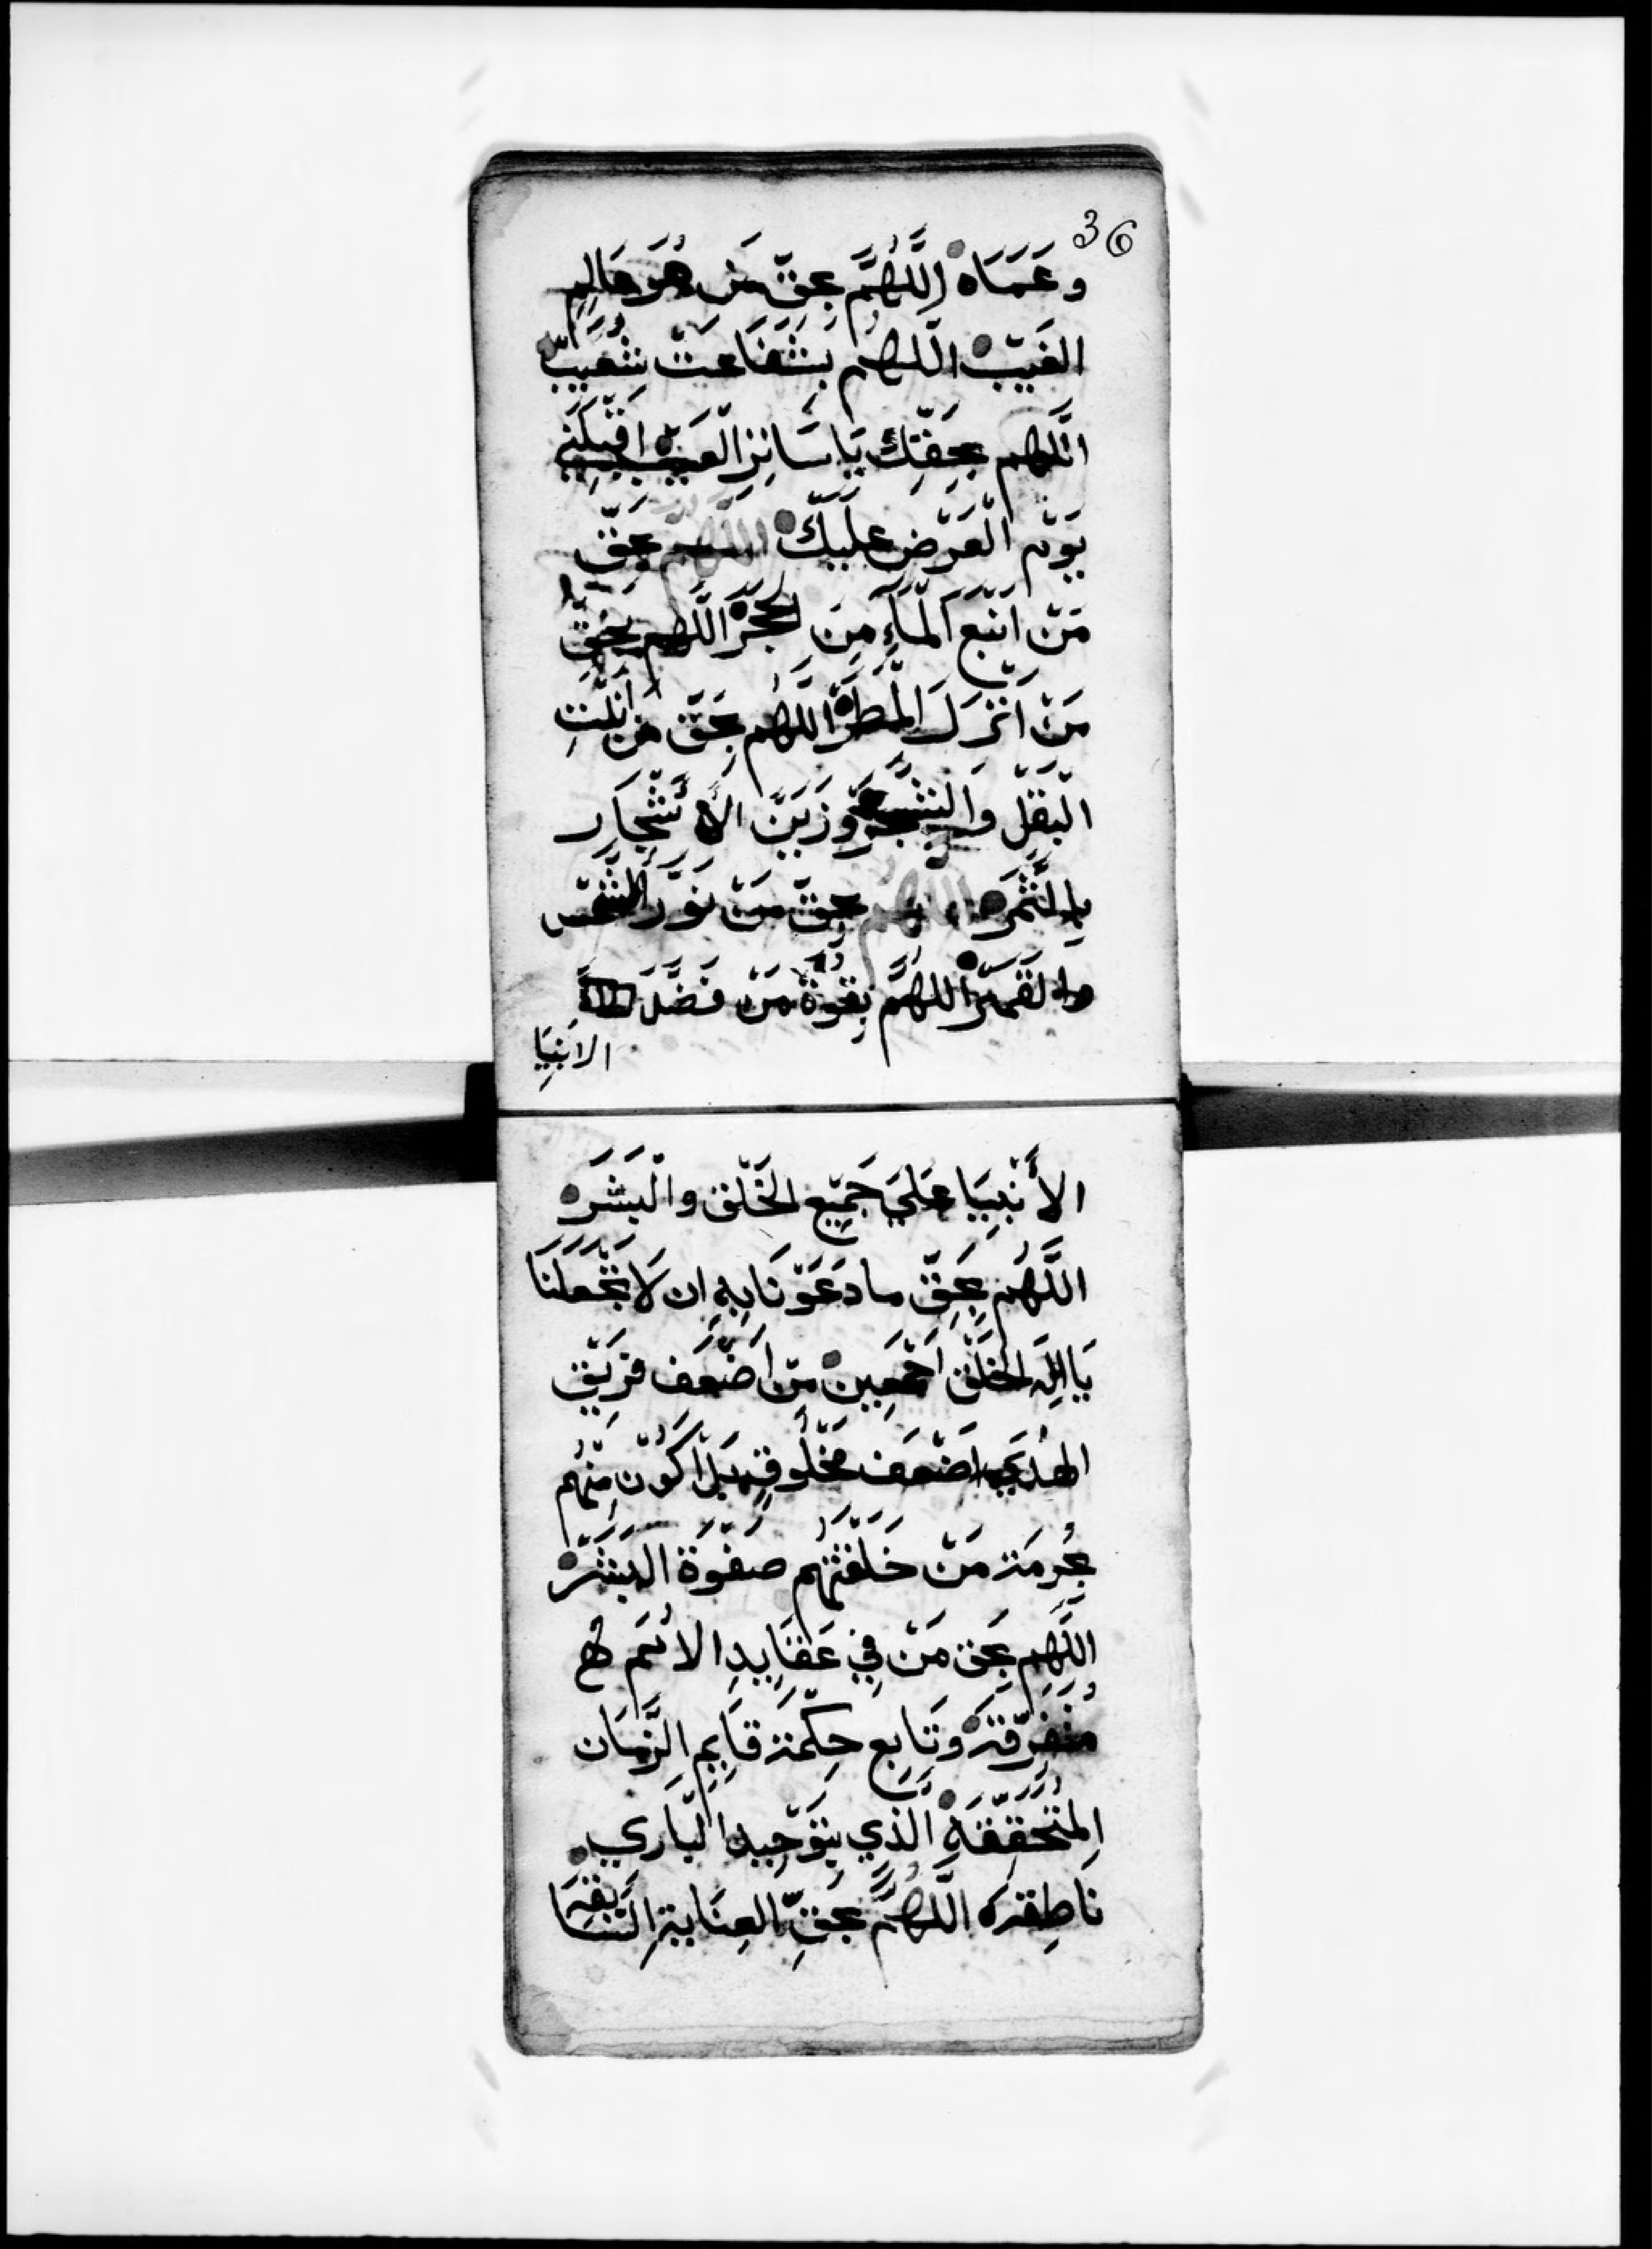 36
وعَمَاهْ اللَّهُمَّ بحقّ مَن هُوَ عَالِم
الغَيّبْ اللّهم بشَفَاعَتْ شُعَيبْ
اللَّهم بحَقِّكَ يَا سَاتِر العَيبْ اقبَلنِي
يَوْم الْعَرْض عليْكَ اللَّهم بحَقّ
مَنْ انْبَع الْمآءِ مِنَ الحَجَرْ اللَّهم بحَقِّ
مَنْ انْزَلَ الْمطَرْ اللَّهُم بحَقّ من انبْت
الْبَقِلْ وَالشَّجَرْ وزَيَنْ الأَشْجَار
بِالثَّمَرْ اللهم بحقّ مَنْ نوَّر الشمْس
والقَمَرْ اللهُمَّ بِقُوة مَنْ فضَّلَ
الانبِيَا
الأنْبِيَا عَلي جَمِيْع الخَلْق والْبَشَرْ
اللَّهُم بحَقّ ما دَعَوْنَا بِهِ ان لَا تَجْعَلنَا
يَا اله الخلَقْ اجمَعِين مِنْ اضْعَف فَرِيْق
الهُدَي اضْعَف مَخْلُوق بَل اكُوْن مِنْهُم
بحُرمَة مَنْ خَلَقْتَهُم صَفْوَة البَشَرْ
اللَّهم بحَق مَنْ فِي عَقَايِدِ الأمَم
مُتفَرّقَة وتَابِع حِكْمَة قَايِم الزَّمَان
المُتَحَقّقَة الَّذِي بتَوْحِيد الْبَاري
ناطِقَه اللّهُمَّ بحَقِّ العِنَاية السَّابقَه